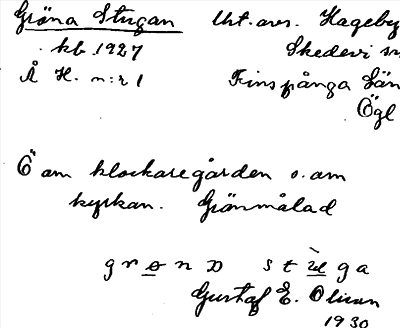 Gröna Stugan Urt. avs. Hageby
kb 1927 Skedevi sn
Å H. n:r 1 Finspånga Län
Ögl
Ö am klockaregården o. am
kyrkan. Grönmålad
grøno stuga
Gustaf E. Olsson
1930